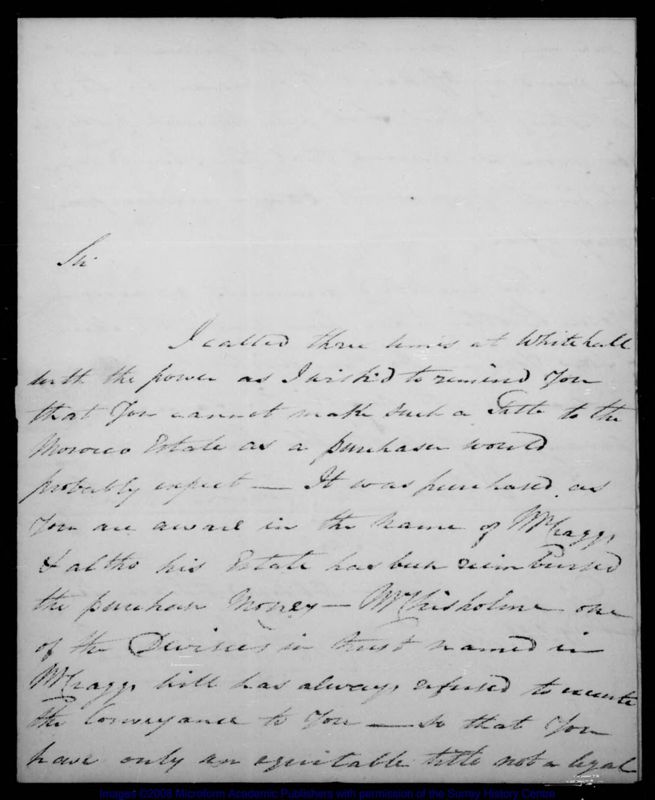 Sir
I called three times at Whitehall
with the power as I wish'd to remind You
that You cannot make such a Title to the
Morocco Estate as a purchaser would
probably expect — It was purchased as
You are aware in the name of Mr Cragg,
& altho his Estate has been reimbursed
the purchase Money — Mr Chisholme one
of the Devisees in trust named in
Mr Craggs Will has always refused to execute
the Conveyance to You — so that You
have only an equitable title not a legal
Images ©2008 Microform Academic Publishers with permission of the Surrey History Centre